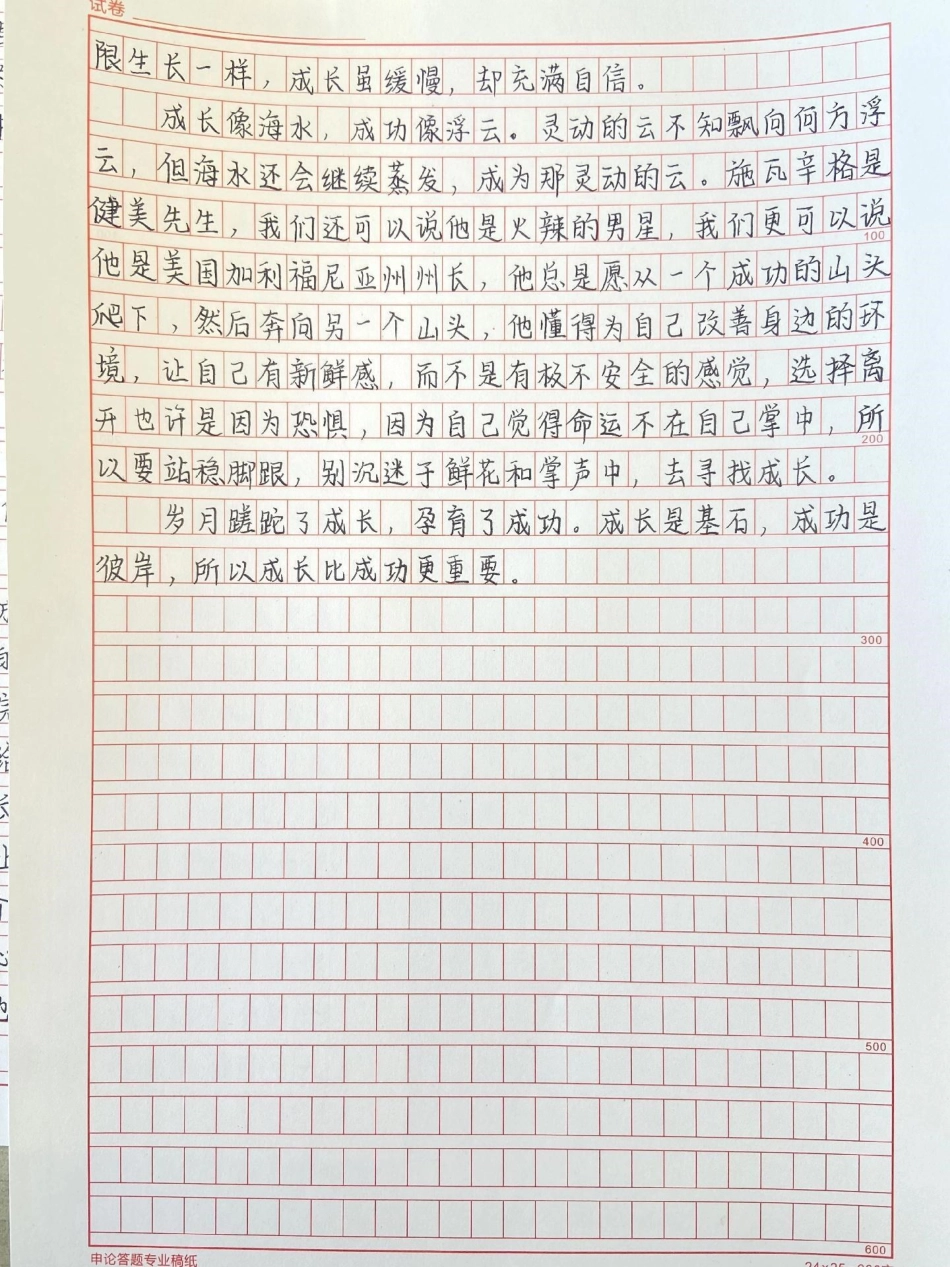 试卷
限生长一样，成长虽缓慢，却充满自信。
成长像海水，成功像浮云。灵动的云不知飘向何方浮
云，但海水还会继续蒸发，成为那灵动的云。施瓦辛格是
健美先生，我们还可以说他是火辣的男星，我们更可以说
100
他是美国加利福尼亚州州长，他总是愿从一个成功的山头
爬下，然后奔向另一个山头，他懂得为自己改善身边的环
境，让自己有新鲜感，而不是有极不安全的感觉，选择离
开也许是因为恐惧，因为自己觉得命运不在自己掌中，所
200
以要站稳脚跟，别沉迷于鲜花和掌声中，去寻找成长。
岁月蹉跎了成长，孕育了成功。成长是基石，成功是
彼岸，所以成长比成功更重要。
300
400
500
600
申论答题专业稿纸